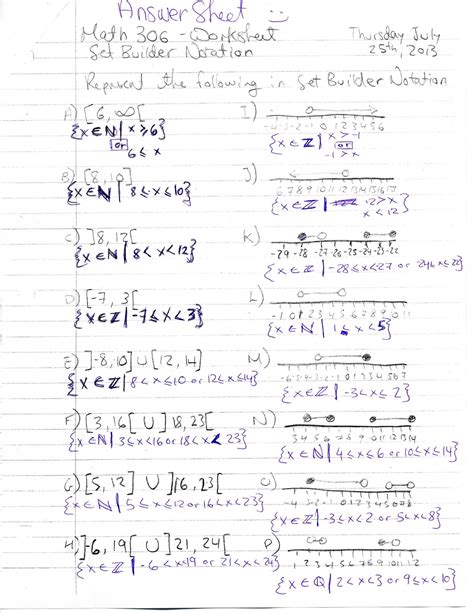 Answer Sheet
Math 306 - Worksheet
Thursday July
Set Builder Notation
25th, 2013
Represent the following in Set Builder Notation
A) [6, ∞[
{x ∈ ℕ | x ≥ 6}
or
6 ≤ x
B) [8, 10]
{x ∈ ℕ | 8 ≤ x ≤ 10}
C) ]8, 12[
{x ∈ ℕ | 8 < x < 12}
D) [-7, 3[
{x ∈ ℤ | -7 ≤ x < 3}
E) ]-8, 10] ∪ [12, 14]
{x ∈ ℤ | 8 < x ≤ 10 or 12 ≤ x ≤ 14}
F) [3, 16[ ∪ ] 18, 23[
{x ∈ ℕ | 3 ≤ x < 16 or 18 < x < 23}
G) [5, 12] ∪ ]16, 23[
{x ∈ ℕ | 5 ≤ x ≤ 12 or 16 < x < 23}
H) ]-6, 19[ ∪ ] 21, 24[
{x ∈ ℤ | -6 < x < 19 or 21 < x < 24}
I)
-4 -3 -2 -1 0 1 2 3 4 5 6
{x ∈ ℤ | x > -1
or
-1 > x
J)
6 7 8 9 10 11 12 13 14 15 16 17
{x ∈ ℤ | 12 > x
x < 12}
K)
-29 -28 -27 -26 -25 -24 -23 -22
{x ∈ ℤ | -28 ≤ x < 27 or
L)
-1 0 1 2 3 4 5 6 7 8 9
{x ∈ ℕ | 1 < x < 5}
M)
-6 -5 -4 -3 -2 -1 0 1 2 3 4 5 6 7
{x ∈ ℤ | -3 < x ≤ 2}
N)
3 4 5 6 7 8 9 10 11 12 13 14
{x ∈ ℕ | 4 ≤ x ≤ 6 or 10 ≤ x ≤ 14}
O)
{x ∈ ℤ | -3 ≤ x < 2 or 5 < x < 8}
P)
1 2 3 4 5 6 7 8 9 10 11 12
{x ∈ ℚ | 2 < x < 3 or 9 ≤ x < 10}